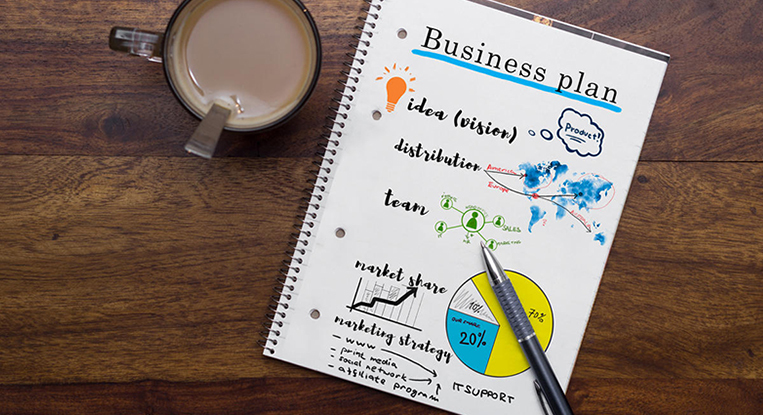 Business plan
idea (vision)
Product!
distribution
America
Europe
team
SALES
market share
10%
70%
20%
marketing strategy
- www
- print media
- social network
- affiliate program
IT SUPPORT